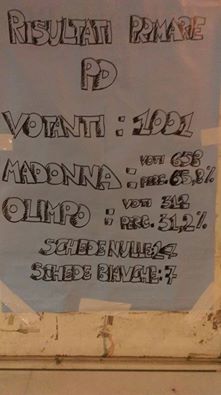 RISULTATI PRIMARIE
PD
VOTANTI : 1001
MADONNA : VOTI 658
PERC. 65,8%
OLIMPO : VOTI 312
PERC. 31,2%
SCHEDE NULLE: 24
SCHEDE BIANCHE: 7